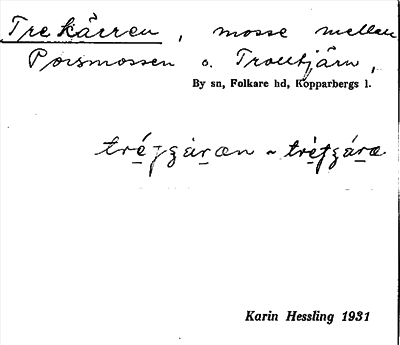 Trekärren, mosse mellan
Porsmossen o. Trolltjärn,
By sn, Folkare hd, Kopparbergs l.
Karin Hessling 1931